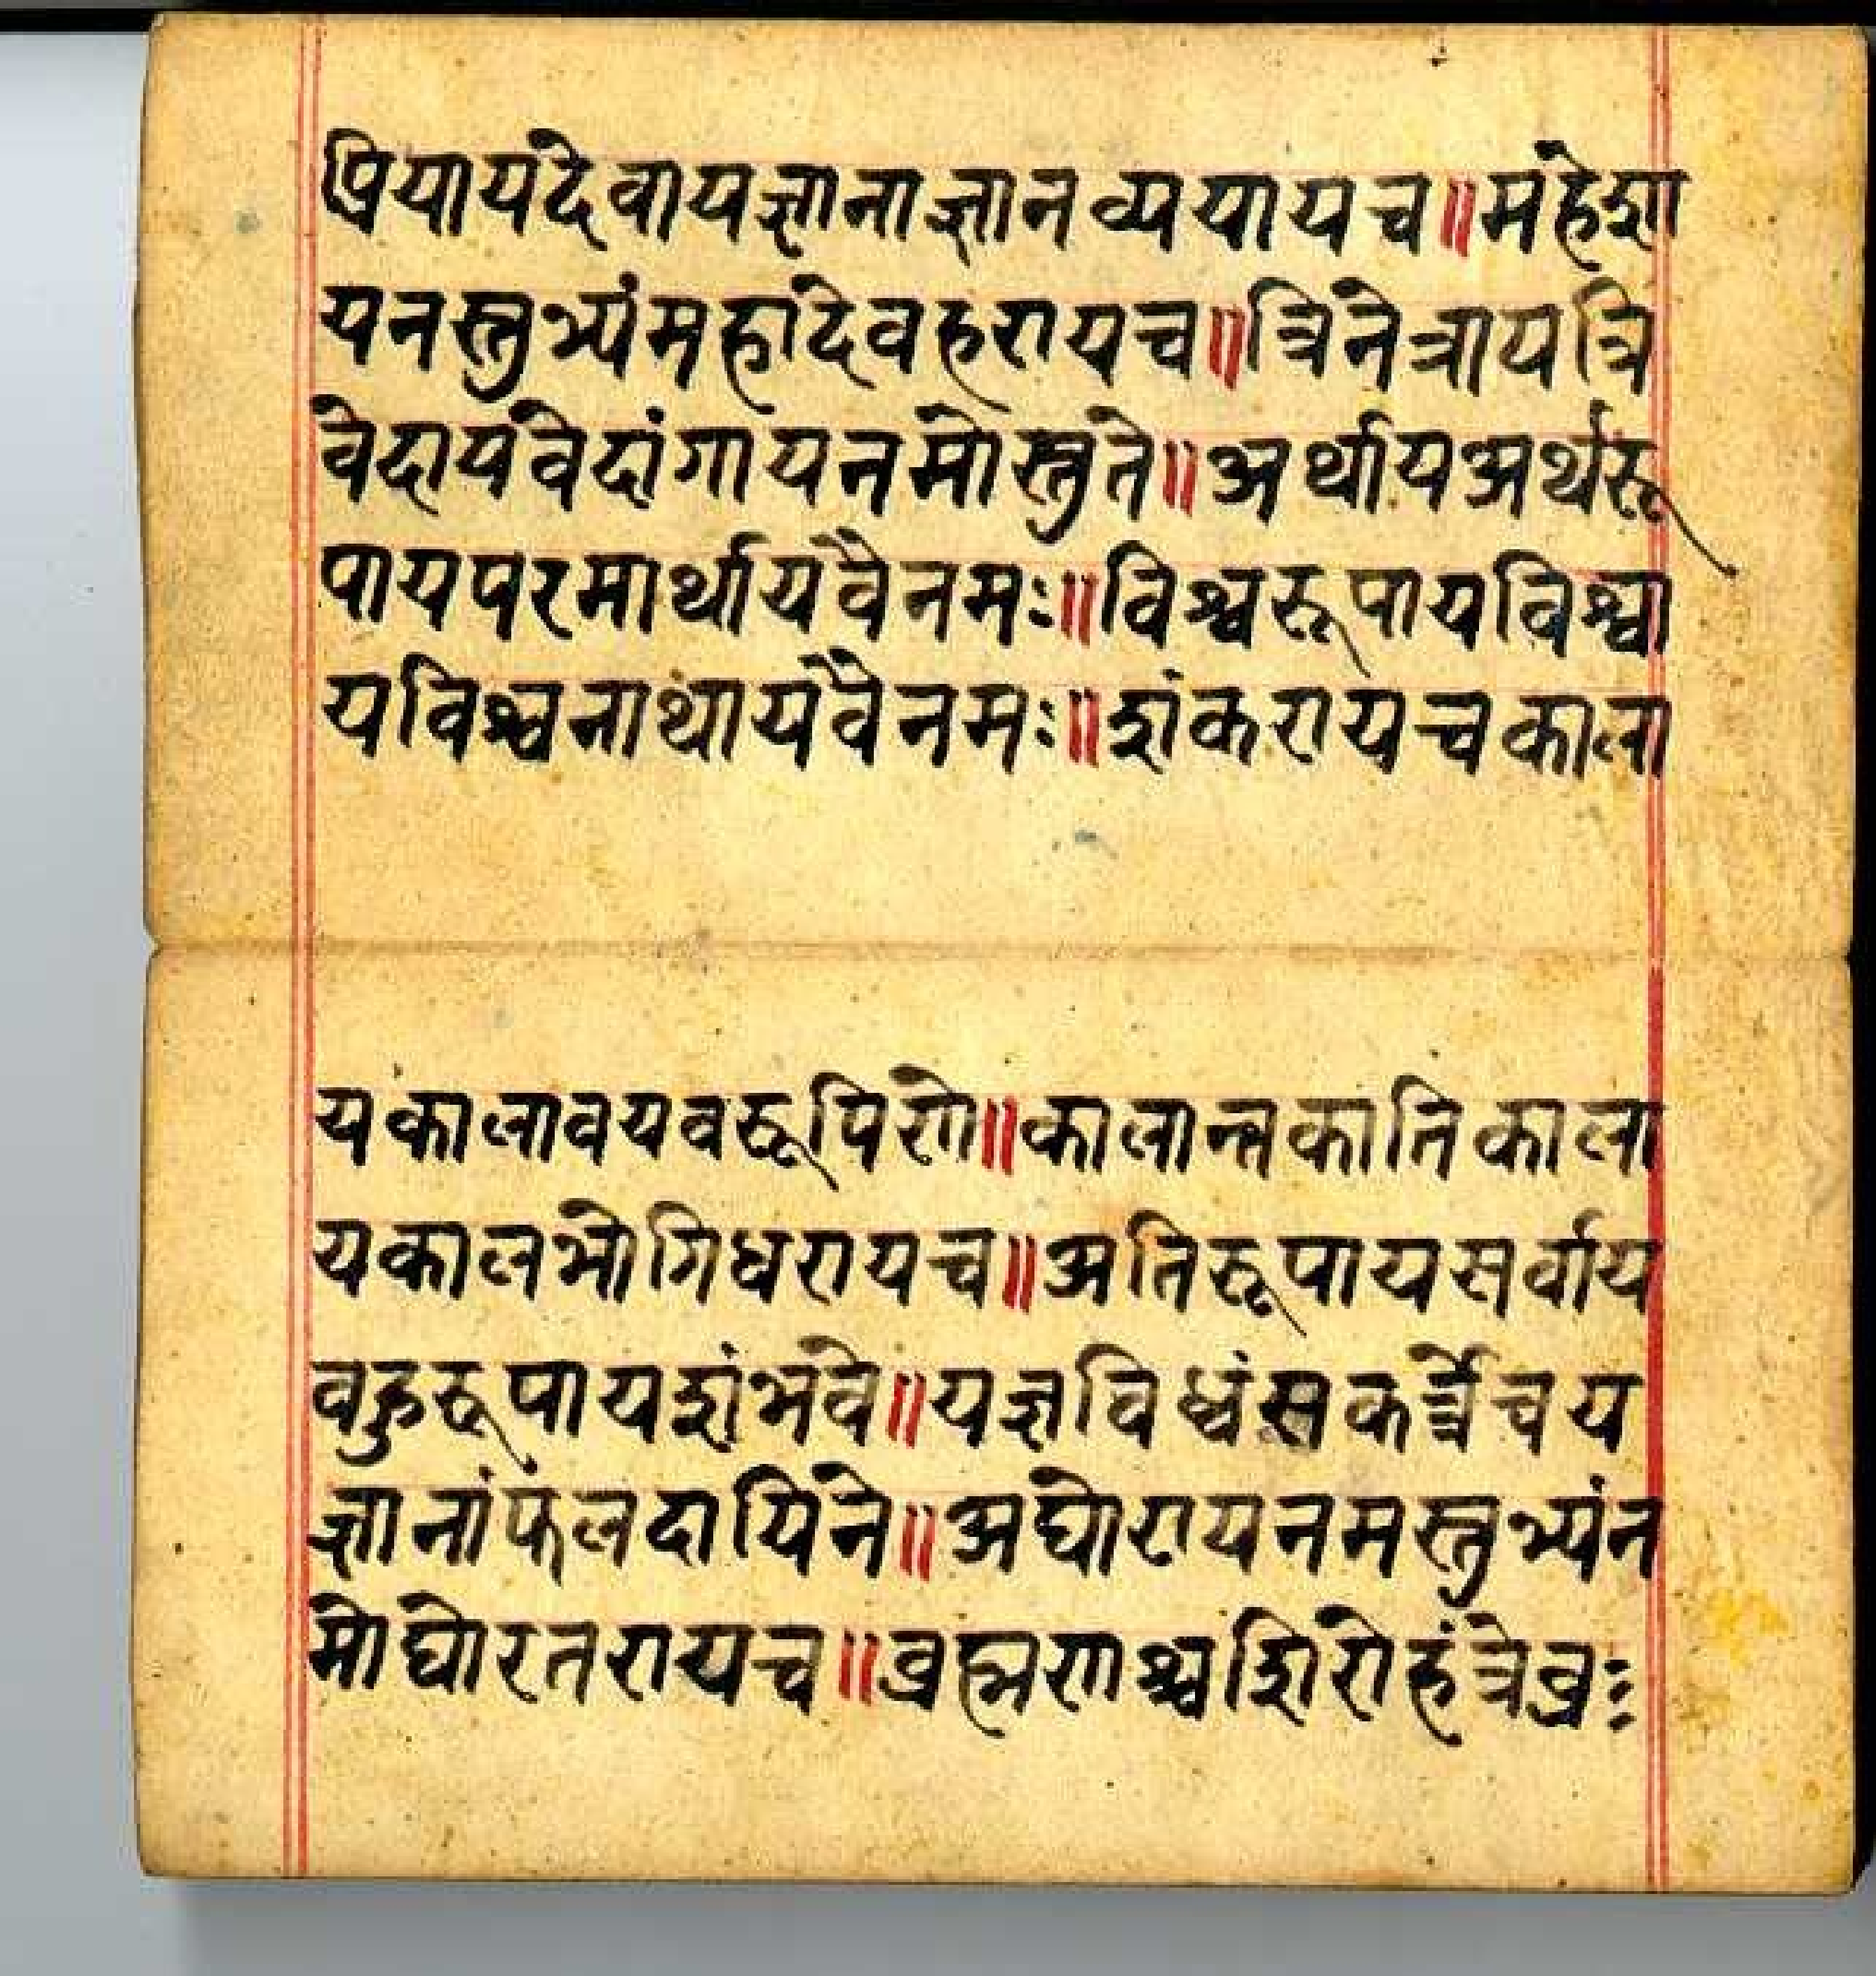 प्रियायदेवायज्ञानाज्ञानव्ययायच॥महेशा
यनस्तुभ्यंमहादेवहरायच॥त्रिनेत्रायत्रि
वेदायवेदांगायनमोस्तुते॥अर्थायअर्थरू
पायपरमार्थायवैनमः॥विश्वरूपायविश्वा
यविश्वनाथायवैनमः॥शंकरायचकाला
यकालावयवरूपिणे॥कालान्तकातिकाला
यकालभोगिधरायच॥अतिरूपायसर्वाय
वहुरूपायशंभवे॥यज्ञविध्वंसकर्त्रेचय
ज्ञानांफलदायिने॥अघोरायनमस्तुभ्यंन
मोघोरतरायच॥व्रह्मणश्चशिरोहंत्रेव्रः